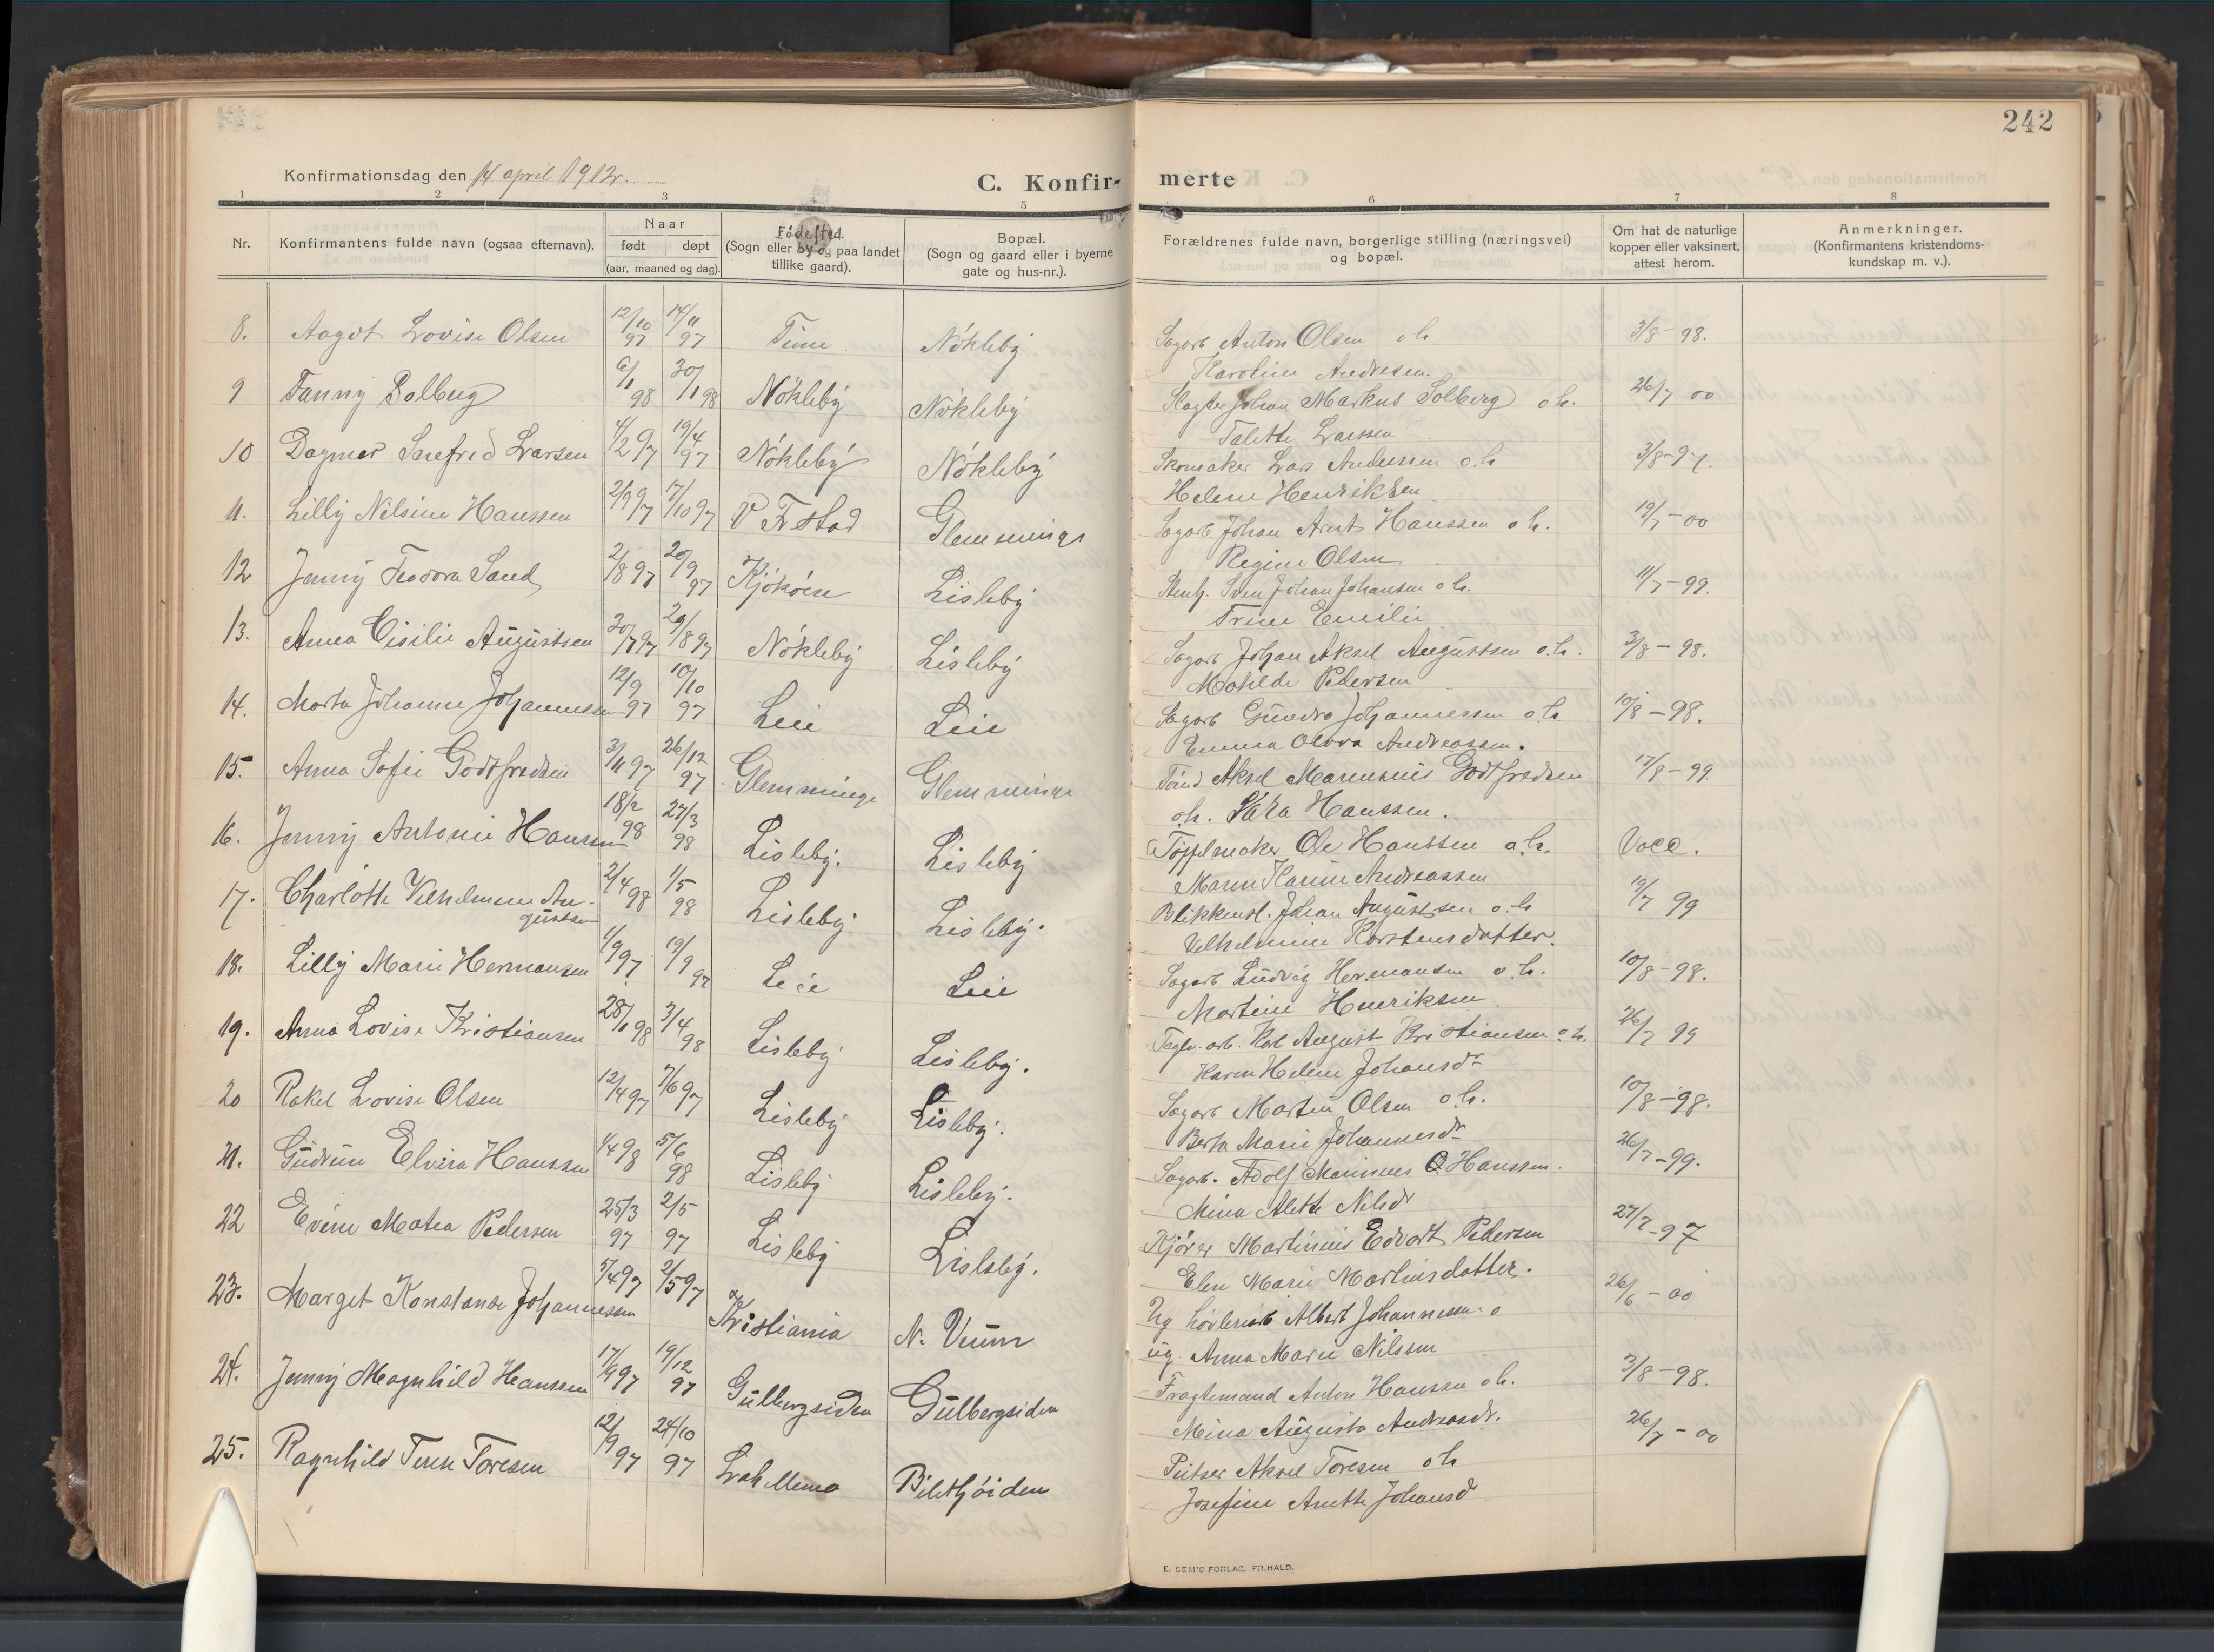 242
Konfirmationsdag den 14 april 1912.
C. Konfir- merte
1 2 3 4 5 6 7 8
Nr.
Konfirmantens fulde navn (ogsaa efternavn).
Naar
født døpt
(aar, maaned og dag).
Fødested.
(Sogn eller by og paa landet
tillike gaard).
Bopæl.
(Sogn og gaard eller i byerne
gate og hus-nr.).
Forældrenes fulde navn, borgerlige stilling (næringsvei)
og bopæl.
Om hat de naturlige
kopper eller vaksinert,
attest herom.
Anmerkninger.
(Konfirmantens kristendoms-
kundskap m. v.).
8. Aagot Lovise Olsen 12/10 97 14/11 97 Nökleby Sagarb Anton Olsen o h 3/8-98.
Karoline Andresen
9 Fanny Solberg 6/1 98 30/1 98 Nökleby Nökleby Slagter Johan Markus Solberg o h. 26/7 00
Talette Larssen
10 Dagmar Snefrid Larsen 4/2 97 19/4 97 Nökleby Nökleby Skomaker Lars Andersen o. h
Helene Henriksen
11. Lilly Nilsine Hanssen 2/9 97 17/10 97 V Fr stad Glemminge Sagarb Johan Arnt Hanssen o h. 19/7-00
Regine Olsen
12 Jenny Teodora Sand 2/8 97 20/9 97 Kjökøen Lisleby Stenh. Sven Johan Johansen o h. 11/7-99.
Trine Emilie
13. Anna Cisilie Augustsen 29/8 97 Nökleby Lisleby Sagarb Johan Aksel Augustsen o. h. 3/8-98.
Matilde Pedersen
14. Marta Johanne Johannessen 12/9 97 10/10 97 Leie Leie Sagarb Johannessen o h 10/8-98.
Emma Olava Andreassen.
15. Anna Sofie Godtfredsen 3/11 97 26/12 97 Glemminge Glemminge Aksel Marensius Godtfredsen 17/8-99
o. h. Hanssen.
16. Jenny Antonie Hanssen 18/2 98 27/3 98 Lisleby. Lisleby Töffelmaker Ole Hanssen o. h. Vacc.
Maren Karine Andreassen
17. Charlotte Vilhelmine Au- 2/4 98 1/5 98 Lisleby Lisleby. Blikkensl. Johan Augustsen o. h 19/7 99
gustsen
Vilhelmine Karstensdatter.
18. Lilly Marie Hermansen 1/9 97 19/9 97 Leie Leie Sagarb Ludvig Hermansen o. h. 10/8-98.
Martine Henriksen
19. Anna Lovise Kristiansen 28/1 98 3/4 98 Lisleby Lisleby. Tagl. arb. Karl August Kristiansen o. h. 26/7 99
Karen Helene Johansdr
20 Rakel Lovise Olsen 12/4 97 7/6 97 Lisleby Lisleby. Sagarb Martin Olsen o. h. 10/8-98.
Berta Marie Johannesdr
21. Gudrun Elvira Hanssen 1/4 98 5/6 98 Lisleby Lisleby. Sagarb. Adolf Marinius O Hanssen. 26/7-99.
Mina Alette Nilsdr
22 Evine Matea Pedersen 25/3 97 2/5 97 Lisleby Lisleby. Kjörer Martinius Edvart Pedersen 27/7-97
Elen Marie Martinsdatter.
23. Marget Konstanse Johannessen 5/4 97 2/5 97 Kristiania N. Veum Ug høvleriarb Albert Johannessen o 26/6-00
ug. Anna Marie Nilssen
24. Jenny Magnhild Hanssen 17/9 97 19/12 97 Gulbergsiden Gulbergsiden Fragtemand Anton Hanssen o h. 3/8-98.
Mina Augusta Andreasdr.
25. Ragnhild Toresen 12/9 97 24/10 97 Bilethöiden Putser Aksel Toresen o h 26/7-00
Josefine Anette Johansd
E. SEM'S FORLAG, FR.HALD.